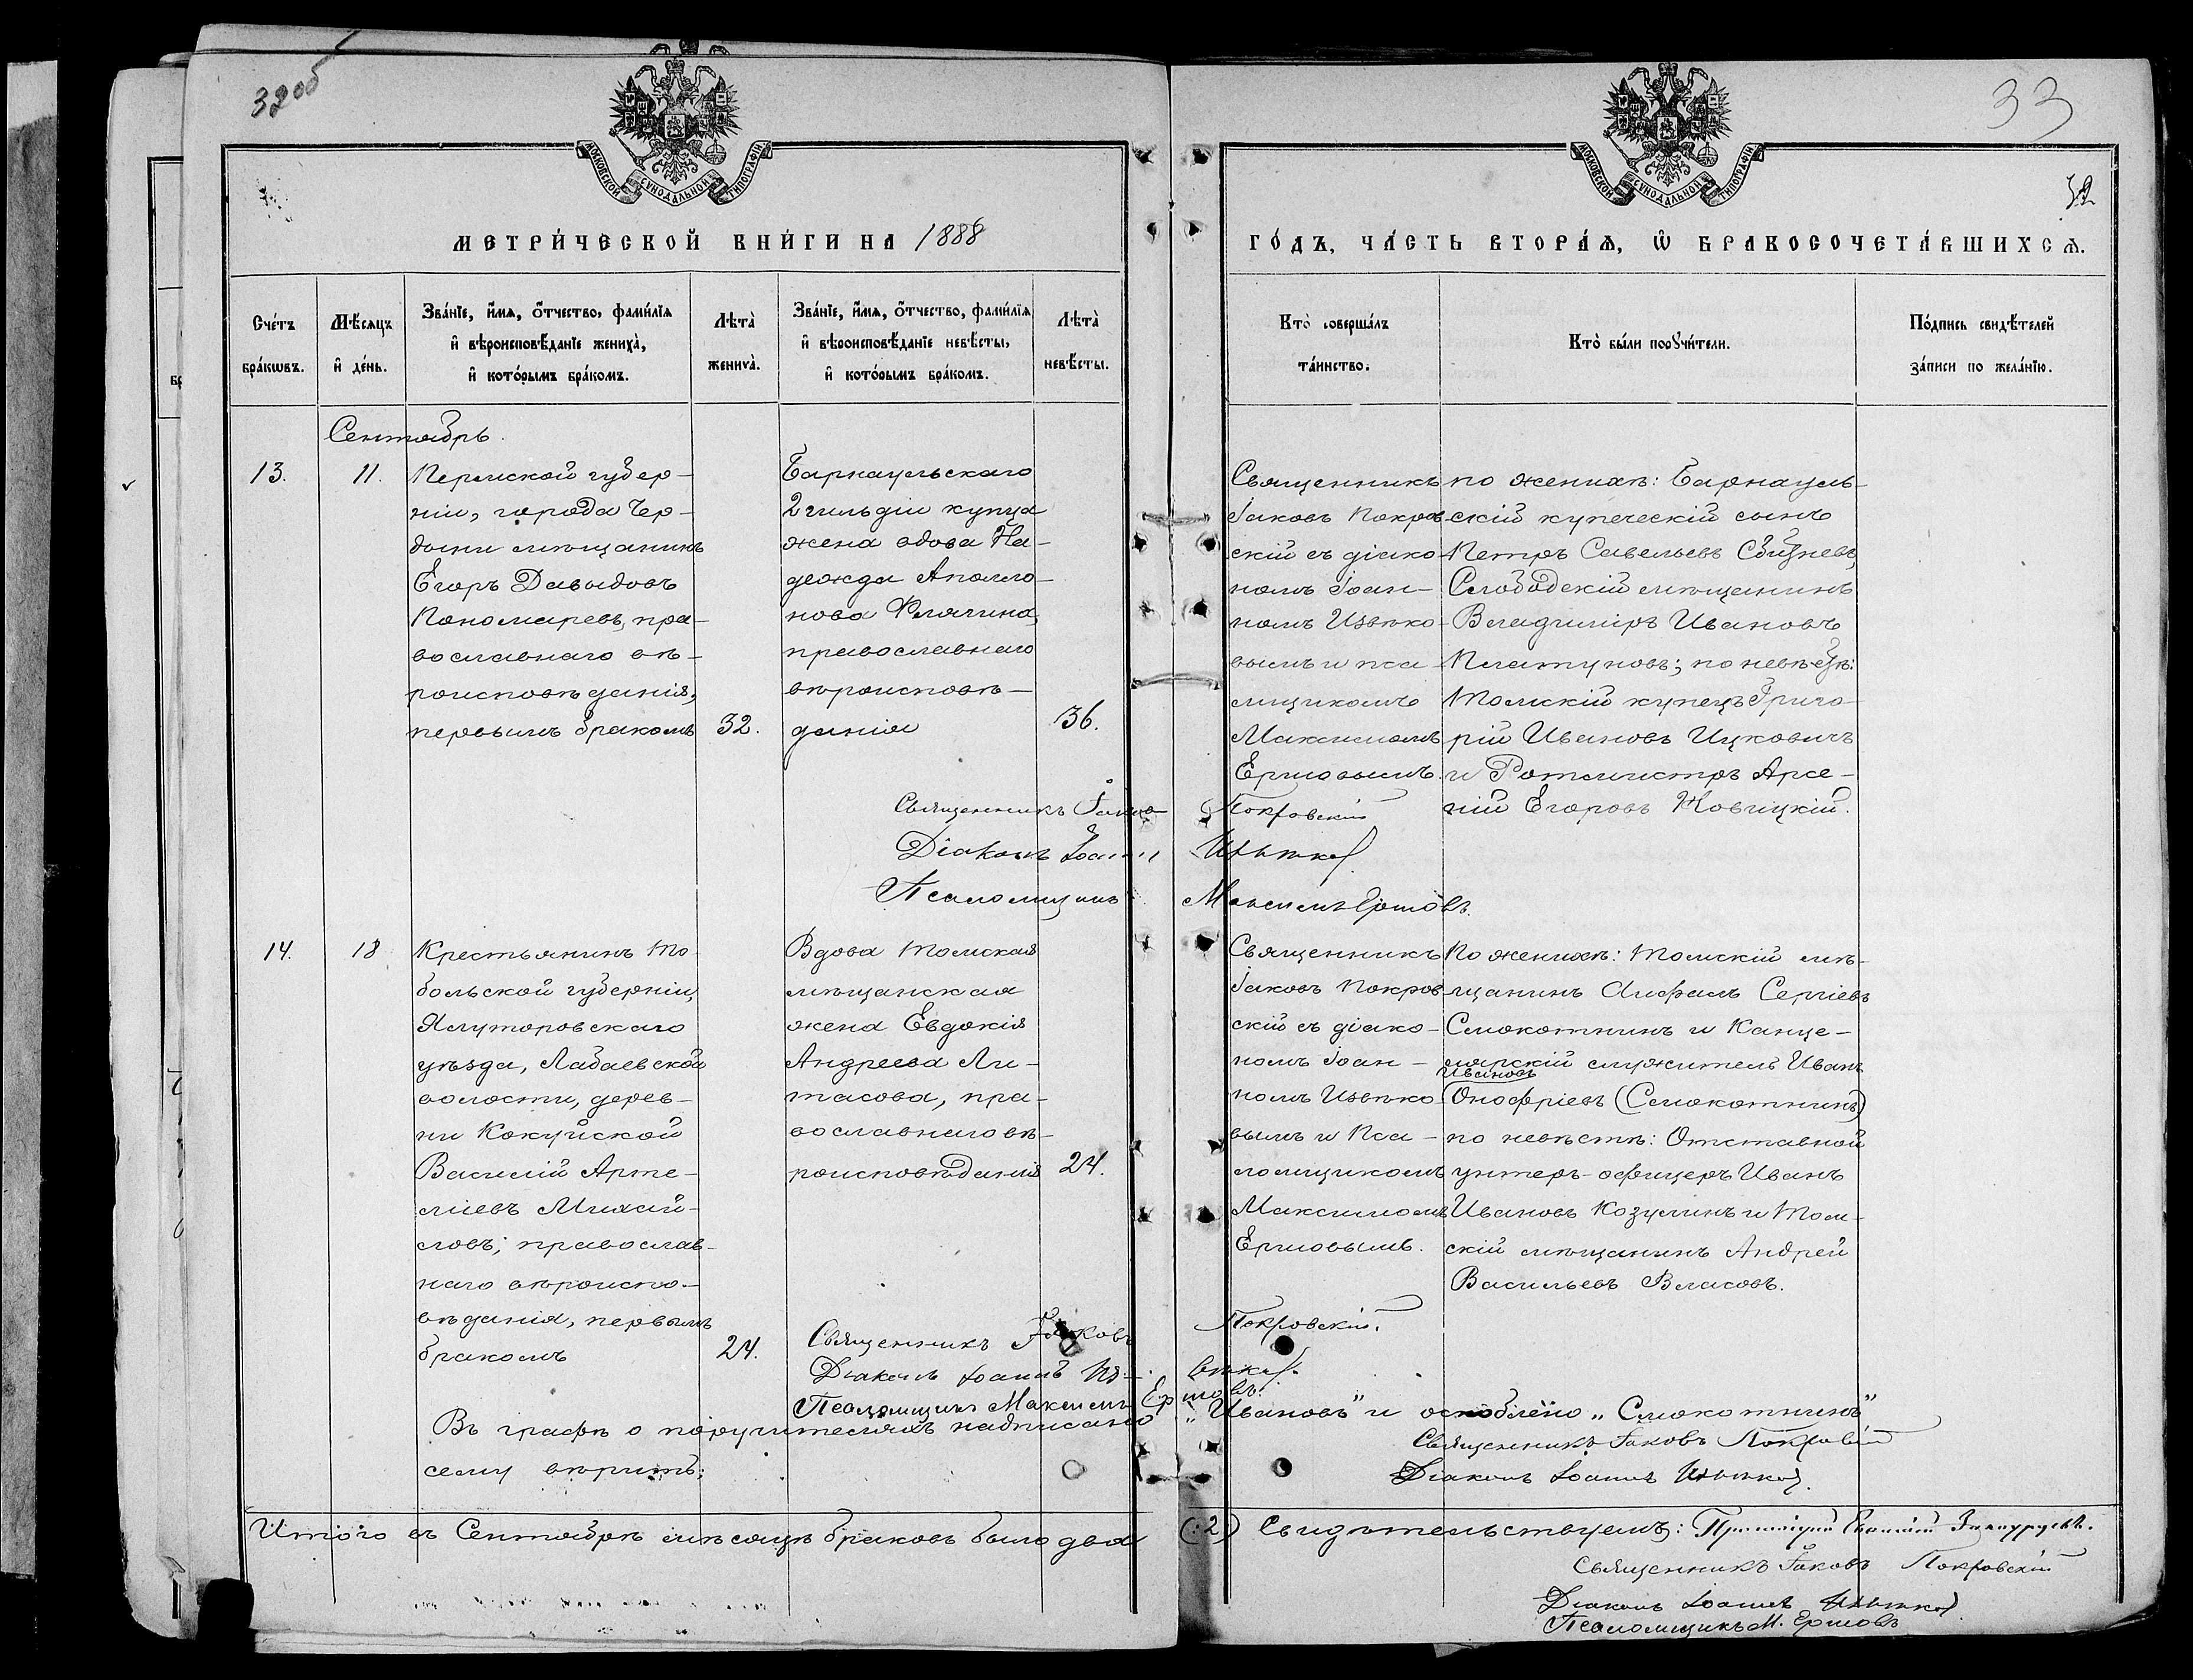 32об
33
32
МОСКОВСКОЙ СѴНОДАЛЬНОЙ ТИПОГРАФІИ
МОСКОВСКОЙ СѴНОДАЛЬНОЙ ТИПОГРАФІИ
МЕТРИ́ЧЕСКОЙ КНИ́ГИ НА 1888
ГО́ДЪ, ЧА́СТЬ ВТОРА́Ѧ, Ѿ БРАКОСОЧЕТА́ВШИХСѦ.
Сче́тъ
бра́кѡвъ.
Мѣ́сяцъ
и҆ де́нь.
Зва́нїе, и҆́мѧ, ѻ҆́тчество, фами́лїѧ
и҆ вѣроисповѣ́данїе жениха̀,
и҆ кото́рымъ бра́комъ.
Лѣта̀
жениха̀.
Зва́нїе, и҆́мѧ, ѻ҆́тчество, фами́лїѧ
и҆ вѣроисповѣ́данїе невѣ́сты,
и҆ кото́рымъ бра́комъ.
Лѣта̀
невѣ́сты.
Кто̀ соверша́лъ
та́инство.
Кто̀ бы́ли порꙋчи́тели.
По́дпись свидѣ́телей
за́писи по жела́нїю.
Сентябрь.
13.
11.
Пермской губер-
ніи, города Чер-
дыни мѣщанинъ
Егоръ Давыдовъ
Пономаревъ, пра-
вославнаго вѣ-
роисповѣданія,
первымъ бракомъ
32.
Барнаульскаго
2 гильдіи купца
жена вдова На-
дежда Аполло-
нова Флягина,
православнаго
вѣроисповѣ-
данія
36.
Священникъ
Іаковъ Покров-
скій съ діако-
номъ Іоан-
номъ Извѣко-
вымъ и пса-
мщикомъ
Максимомъ
Ершовымъ.
по женихѣ: Барнауль-
скій купеческій сынъ
Петръ Савельевъ
Слободскій мѣщанинъ
Владиміръ Ивановъ
Платуновъ; по невѣстѣ:
Томскій купецъ Григо-
рій Ивановъ Ицковичъ
и Ротмистръ Арсе-
ній Егоровъ Новицкій.
Священникъ Іаковъ Покровскій
Діаконъ Іоаннъ Извѣков
Псаломщикъ Максимъ Ершовъ.
14.
18
Крестьянинъ То-
больской губерніи,
Ялуторовскаго
уѣзда, Лабаевской
волости, дерев-
ни Кокуйской
Василій Арте-
міевъ Михай-
ловъ; православ-
наго вѣроиспо-
вѣданія, первымъ
бракомъ
24.
Вдова Томская
мѣщанская
жена Евдокія
Андреева Ли-
тасова, пра-
вославнаго вѣ-
роисповѣданія
24.
Священникъ
Іаковъ Покров-
скій съ діако-
номъ Іоан-
номъ Извѣко-
вымъ и Пса-
ломщикомъ
Максимомъ
Ершовымъ.
По женихѣ: Томскій мѣ-
щанинъ Сергіевъ
Смокотнинъ и Канце-
лярскій служитель Иванъ
Ивановъ
Онофріевъ (Смокотнинъ)
по невѣстѣ: Отставной
унтеръ-офицеръ Иванъ
Ивановъ Козулинъ и Том-
скій мѣщанинъ Андрей
Васильевъ Власовъ.
Священникъ Іаковъ Покровскій.
Діаконъ Іоаннъ Извѣков.
Псаломщикъ Максимъ Ершовъ.
Въ графѣ о поручителяхъ надписано „Ивановъ" и оскоблено „Смокотнинъ"
сему вѣрить;
Священникъ Іаковъ Покровскій
Діаконъ Іоаннъ Извѣков.
Итого въ Сентябрѣ мѣсяцѣ браковъ было два (:2) Свидѣтельствуемъ:
Священникъ Іаковъ Покровскій
Діаконъ Іоаннъ Извѣков.
Псаломщикъ М. Ершовъ